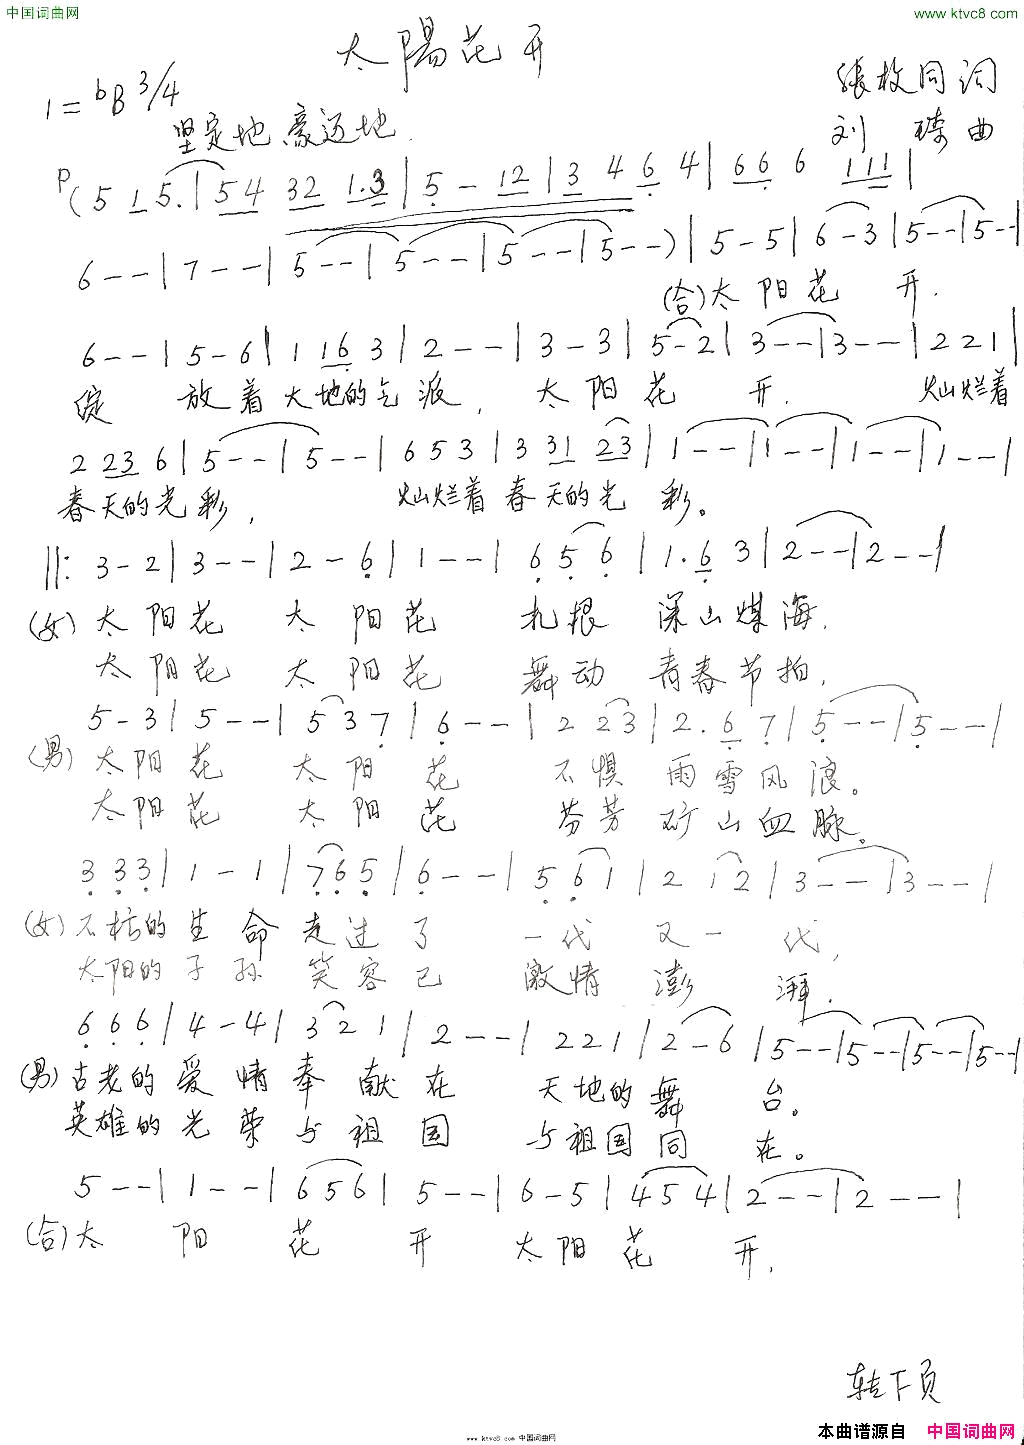 中国词曲网
www.ktvc8.com
太陽花开
1=bB 3/4
张枚同 词
坚定地 豪迈地.
刘 琦 曲
P(5 1 5.|5 4 32 1.3|5 - 12|3 4 6 4|66 6 111|
6--|7--|5--|5--|5--|5--)|5-5|6-3|5--|5--|
(合)太 阳 花 开.
6--|5-6|1 16 3|2--|3-3|5-2|3--|3--|2 2 1|
绽 放着大地的气派, 太 阳 花 开. 灿烂着
2 23 6|5--|5--|6 5 3|3 31 23|1--|1--|1--|1--|
春天的光彩, 灿烂着春天的光 彩。
||:3-2|3--|2-6|1--|6 5 6|1.6 3|2--|2--|
(女)太 阳 花 太 阳 花 扎 根 深 山 煤 海,
太 阳 花 太 阳 花 舞 动 青 春 节 拍,
5-3|5--|5 3 7|6--|2 23|2.6 7|5--|5--|
(男)太 阳 花 太 阳 花 不 惧 雨 雪 风 浪。
太 阳 花 太 阳 花 芬 芳 矿 山 血 脉。
3 3 3|1-1|7 6 5|6--|5 6 1|2 12|3--|3--|
(女)不朽的 生 命 走 过 了 一 代 又 一 代,
太阳的 子 孙 笑 容 已 激 情 澎 湃.
6 6 6|4-4|3 2 1|2--|2 2 1|2-6|5--|5--|5--|5--|
(男)古老的 爱 情 奉 献 在 天地的 舞 台。
英雄的 光 荣 与 祖 国 与祖国 同 在。
5--|1--|6 5 6|5--|6-5|4 5 4|2--|2--|
(合)太 阳 花 开 太 阳 花 开,
转下页
本曲谱源自 中国词曲网
www.ktvc8 中国词曲网